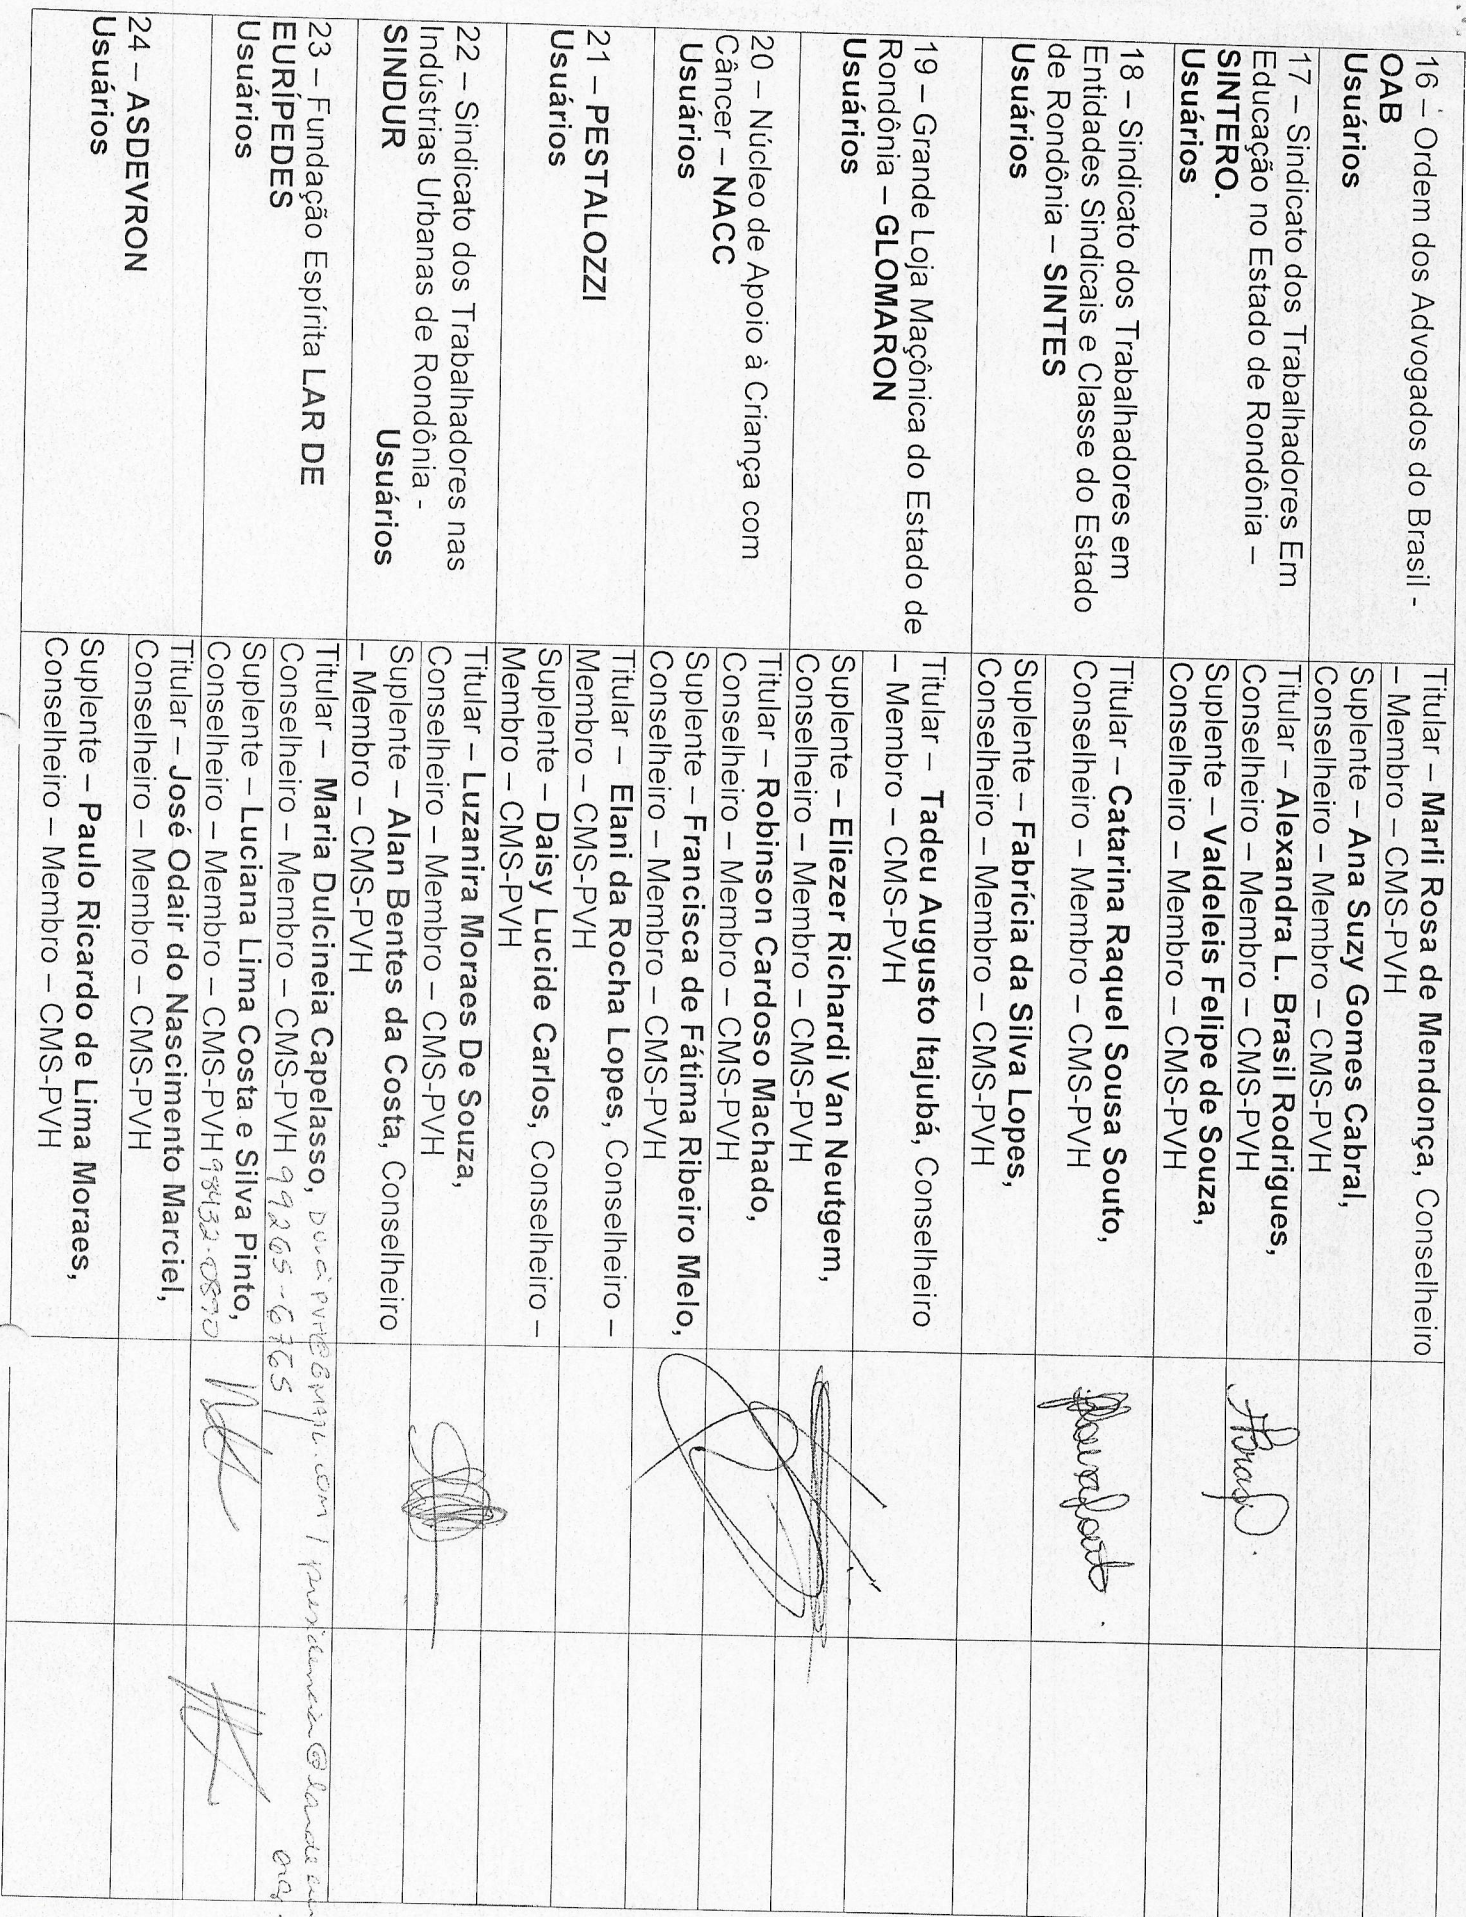 16 – Ordem dos Advogados do Brasil -
OAB
Usuários
Titular – Marli Rosa de Mendonça, Conselheiro
– Membro – CMS-PVH
Suplente – Ana Suzy Gomes Cabral,
Conselheiro – Membro – CMS-PVH
17 – Sindicato dos Trabalhadores Em
Educação no Estado de Rondônia –
SINTERO.
Usuários
Titular – Alexandra L. Brasil Rodrigues,
Conselheiro – Membro – CMS-PVH
Suplente – Valdeleis Felipe de Souza,
Conselheiro – Membro – CMS-PVH
18 – Sindicato dos Trabalhadores em
Entidades Sindicais e Classe do Estado
de Rondônia – SINTES
Usuários
Titular – Catarina Raquel Sousa Souto,
Conselheiro – Membro – CMS-PVH
Suplente – Fabrícia da Silva Lopes,
Conselheiro – Membro – CMS-PVH
19 – Grande Loja Maçônica do Estado de
Rondônia – GLOMARON
Usuários
Titular – Tadeu Augusto Itajubá, Conselheiro
– Membro – CMS-PVH
Suplente – Eliezer Richardi Van Neutgem,
Conselheiro – Membro – CMS-PVH
20 – Núcleo de Apoio à Criança com
Câncer – NACC
Usuários
Titular – Robinson Cardoso Machado,
Conselheiro – Membro – CMS-PVH
Suplente – Francisca de Fátima Ribeiro Melo,
Conselheiro – Membro – CMS-PVH
21 – PESTALOZZI
Usuários
Titular – Elani da Rocha Lopes, Conselheiro –
Membro – CMS-PVH
Suplente – Daisy Lucide Carlos, Conselheiro –
Membro – CMS-PVH
22 – Sindicato dos Trabalhadores nas
Indústrias Urbanas de Rondônia -
SINDUR Usuários
Titular – Luzanira Moraes De Souza,
Conselheiro – Membro – CMS-PVH
Suplente – Alan Bentes da Costa, Conselheiro
– Membro – CMS-PVH
23 – Fundação Espírita LAR DE
EURÍPEDES
Usuários
Titular – Maria Dulcineia Capelasso,
Conselheiro – Membro – CMS-PVH 99265-6765
Suplente – Luciana Lima Costa e Silva Pinto,
Conselheiro – Membro – CMS-PVH
24 – ASDEVRON
Usuários
Titular – José Odair do Nascimento Marciel,
Conselheiro – Membro – CMS-PVH
Suplente – Paulo Ricardo de Lima Moraes,
Conselheiro – Membro – CMS-PVH